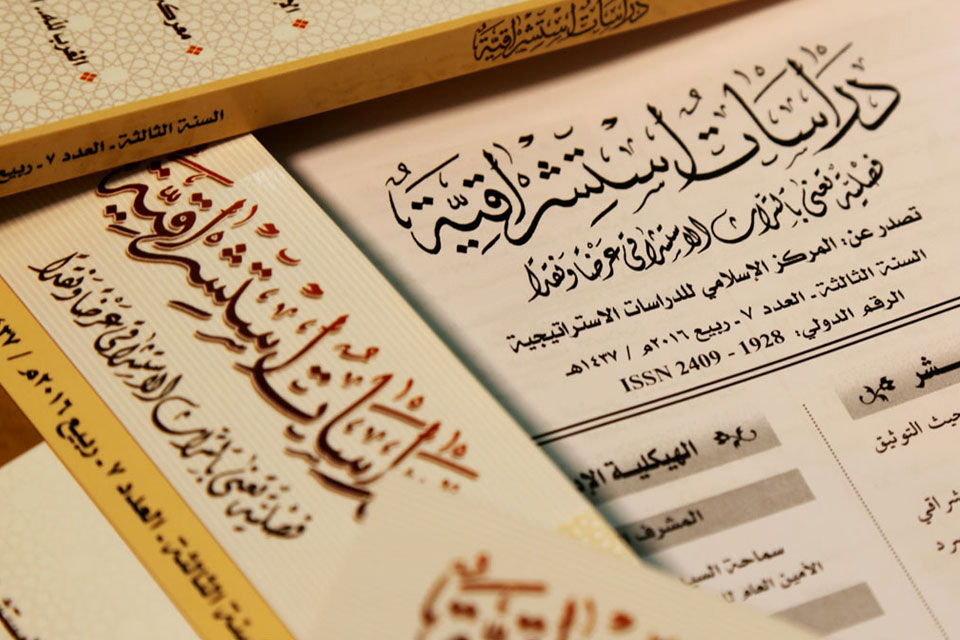 دراسات استشراقية
السنة الثالثة - العدد ٧ - ربيع
معركة
الغرب
دِرَاسَاتٌ اِسْتِشْرَاقِيَّةٌ
فصلية تعنى بالتراث الاستشراقي عرضاً ونقداً
تصدر عن: المركز الإسلامي للدراسات الاستراتيجية
السنة الثالثة - العدد ٧ - ربيع ٢٠١٦م / ١٤٣٧هـ
الرقم الدولي: ISSN 2409 - 1928
ـشر
حيث التوثيق
الهيكلية
المشرف
سماحة
الأمين العام
دراسات استشراقية
فصلية تعنى بالتراث الاستشراقي عرضاً ونقداً
سنة الثالثة - العدد ٧ - ربيع ٢٠١٦م / ١٤٣٧